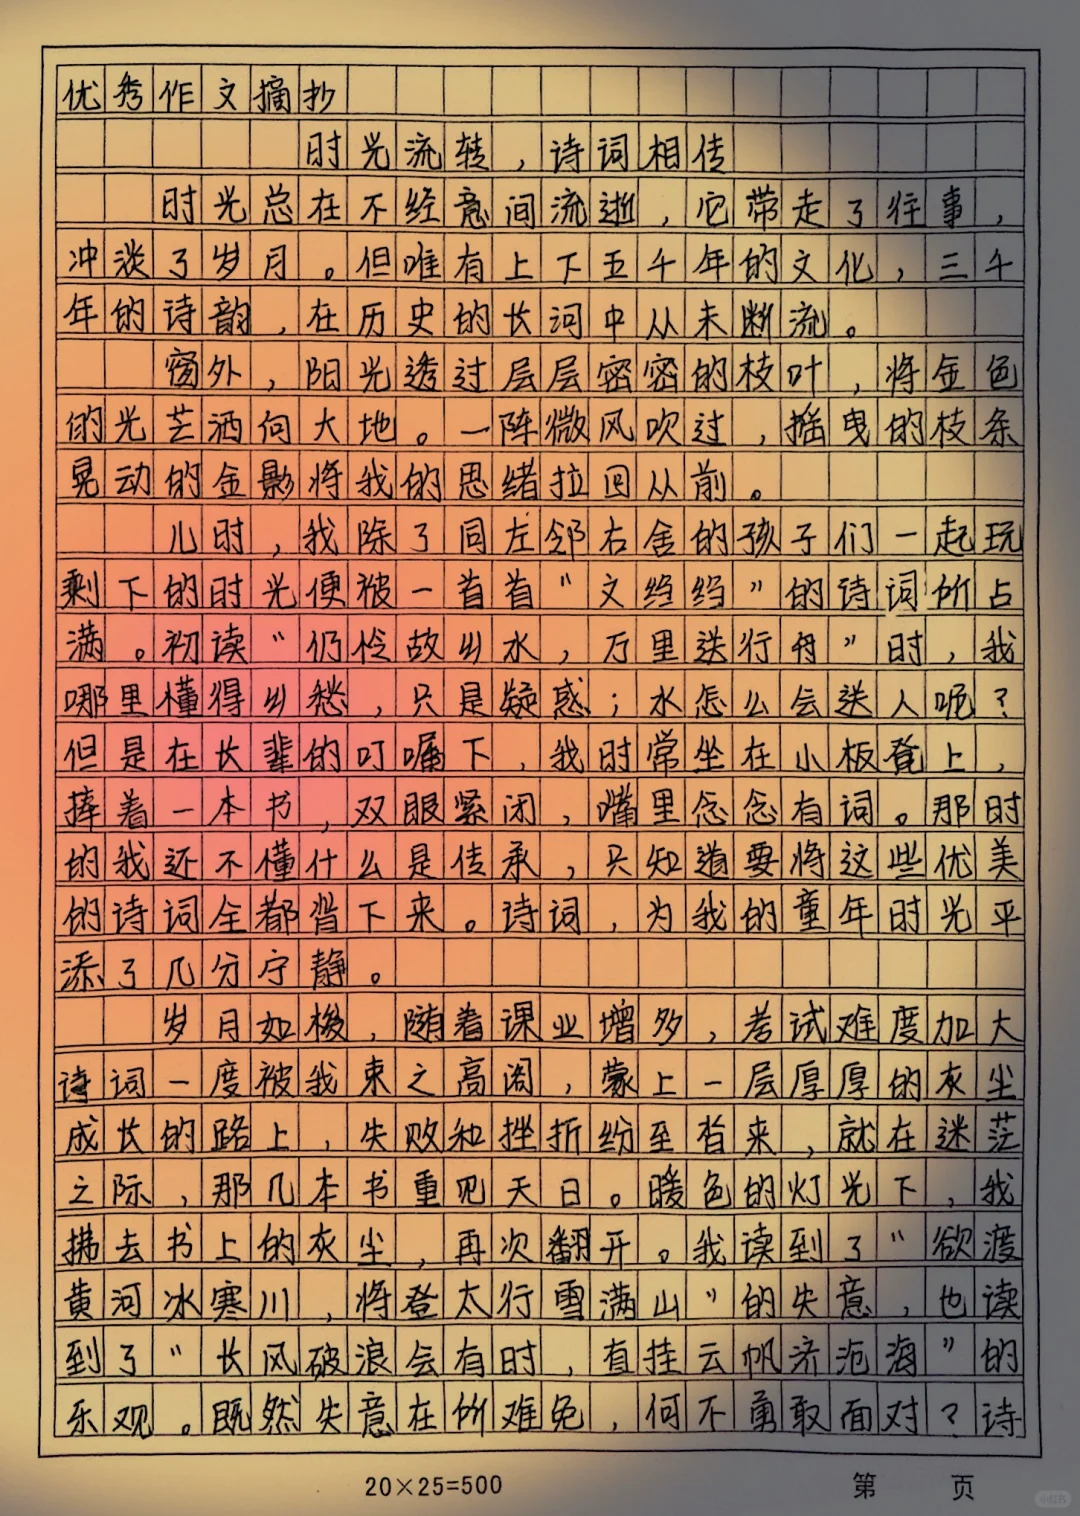 优秀作文摘抄
时光流转，诗词相传
时光总在不经意间流逝，它带走了往事，
冲淡了岁月。但唯有上下五千年的文化，三千
年的诗韵，在历史的长河中从未断流。
窗外，阳光透过层层密密的枝叶，将金色
的光芒洒向大地。一阵微风吹过，摇曳的枝条
晃动的金影将我的思绪拉回从前。
儿时，我除了同左邻右舍的孩子们一起玩
剩下的时光便被一首首“文绉绉”的诗词所占
满。初读“仍怜故乡水，万里送行舟”时，我
哪里懂得乡愁，只是疑惑；水怎么会送人呢？
但是在长辈的叮嘱下，我时常坐在小板凳上，
捧着一本书，双眼紧闭，嘴里念念有词。那时
的我还不懂什么是传承，只知道要将这些优美
的诗词全都背下来。诗词，为我的童年时光平
添了几分宁静。
岁月如梭，随着课业增多，考试难度加大
诗词一度被我束之高阁，蒙上一层厚厚的灰尘
成长的路上，失败和挫折纷至沓来，就在迷茫
之际，那几本书重见天日。暖色的灯光下，我
拂去书上的灰尘，再次翻开。我读到了“欲渡
黄河冰寒川，将登太行雪满山”的失意，也读
到了“长风破浪会有时，直挂云帆济沧海”的
乐观。既然失意在所难免，何不勇敢面对？诗
20×25=500
第 页
小红书